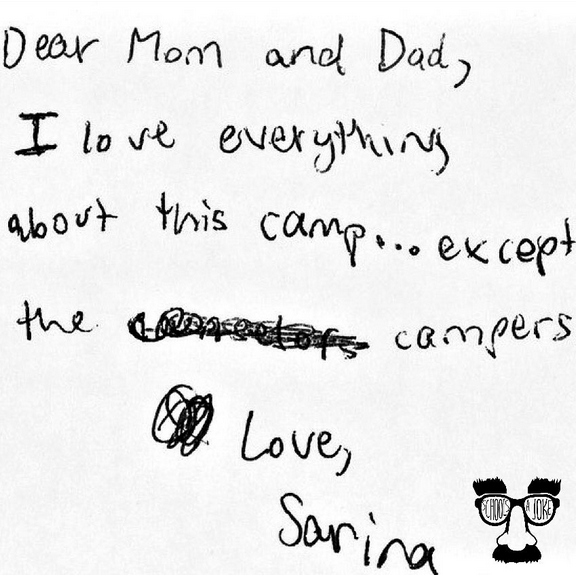 Dear Mom and Dad,
I love everything
about this camp... except
the campers
Love,
Sarina
SCHOOL'S A JOKE